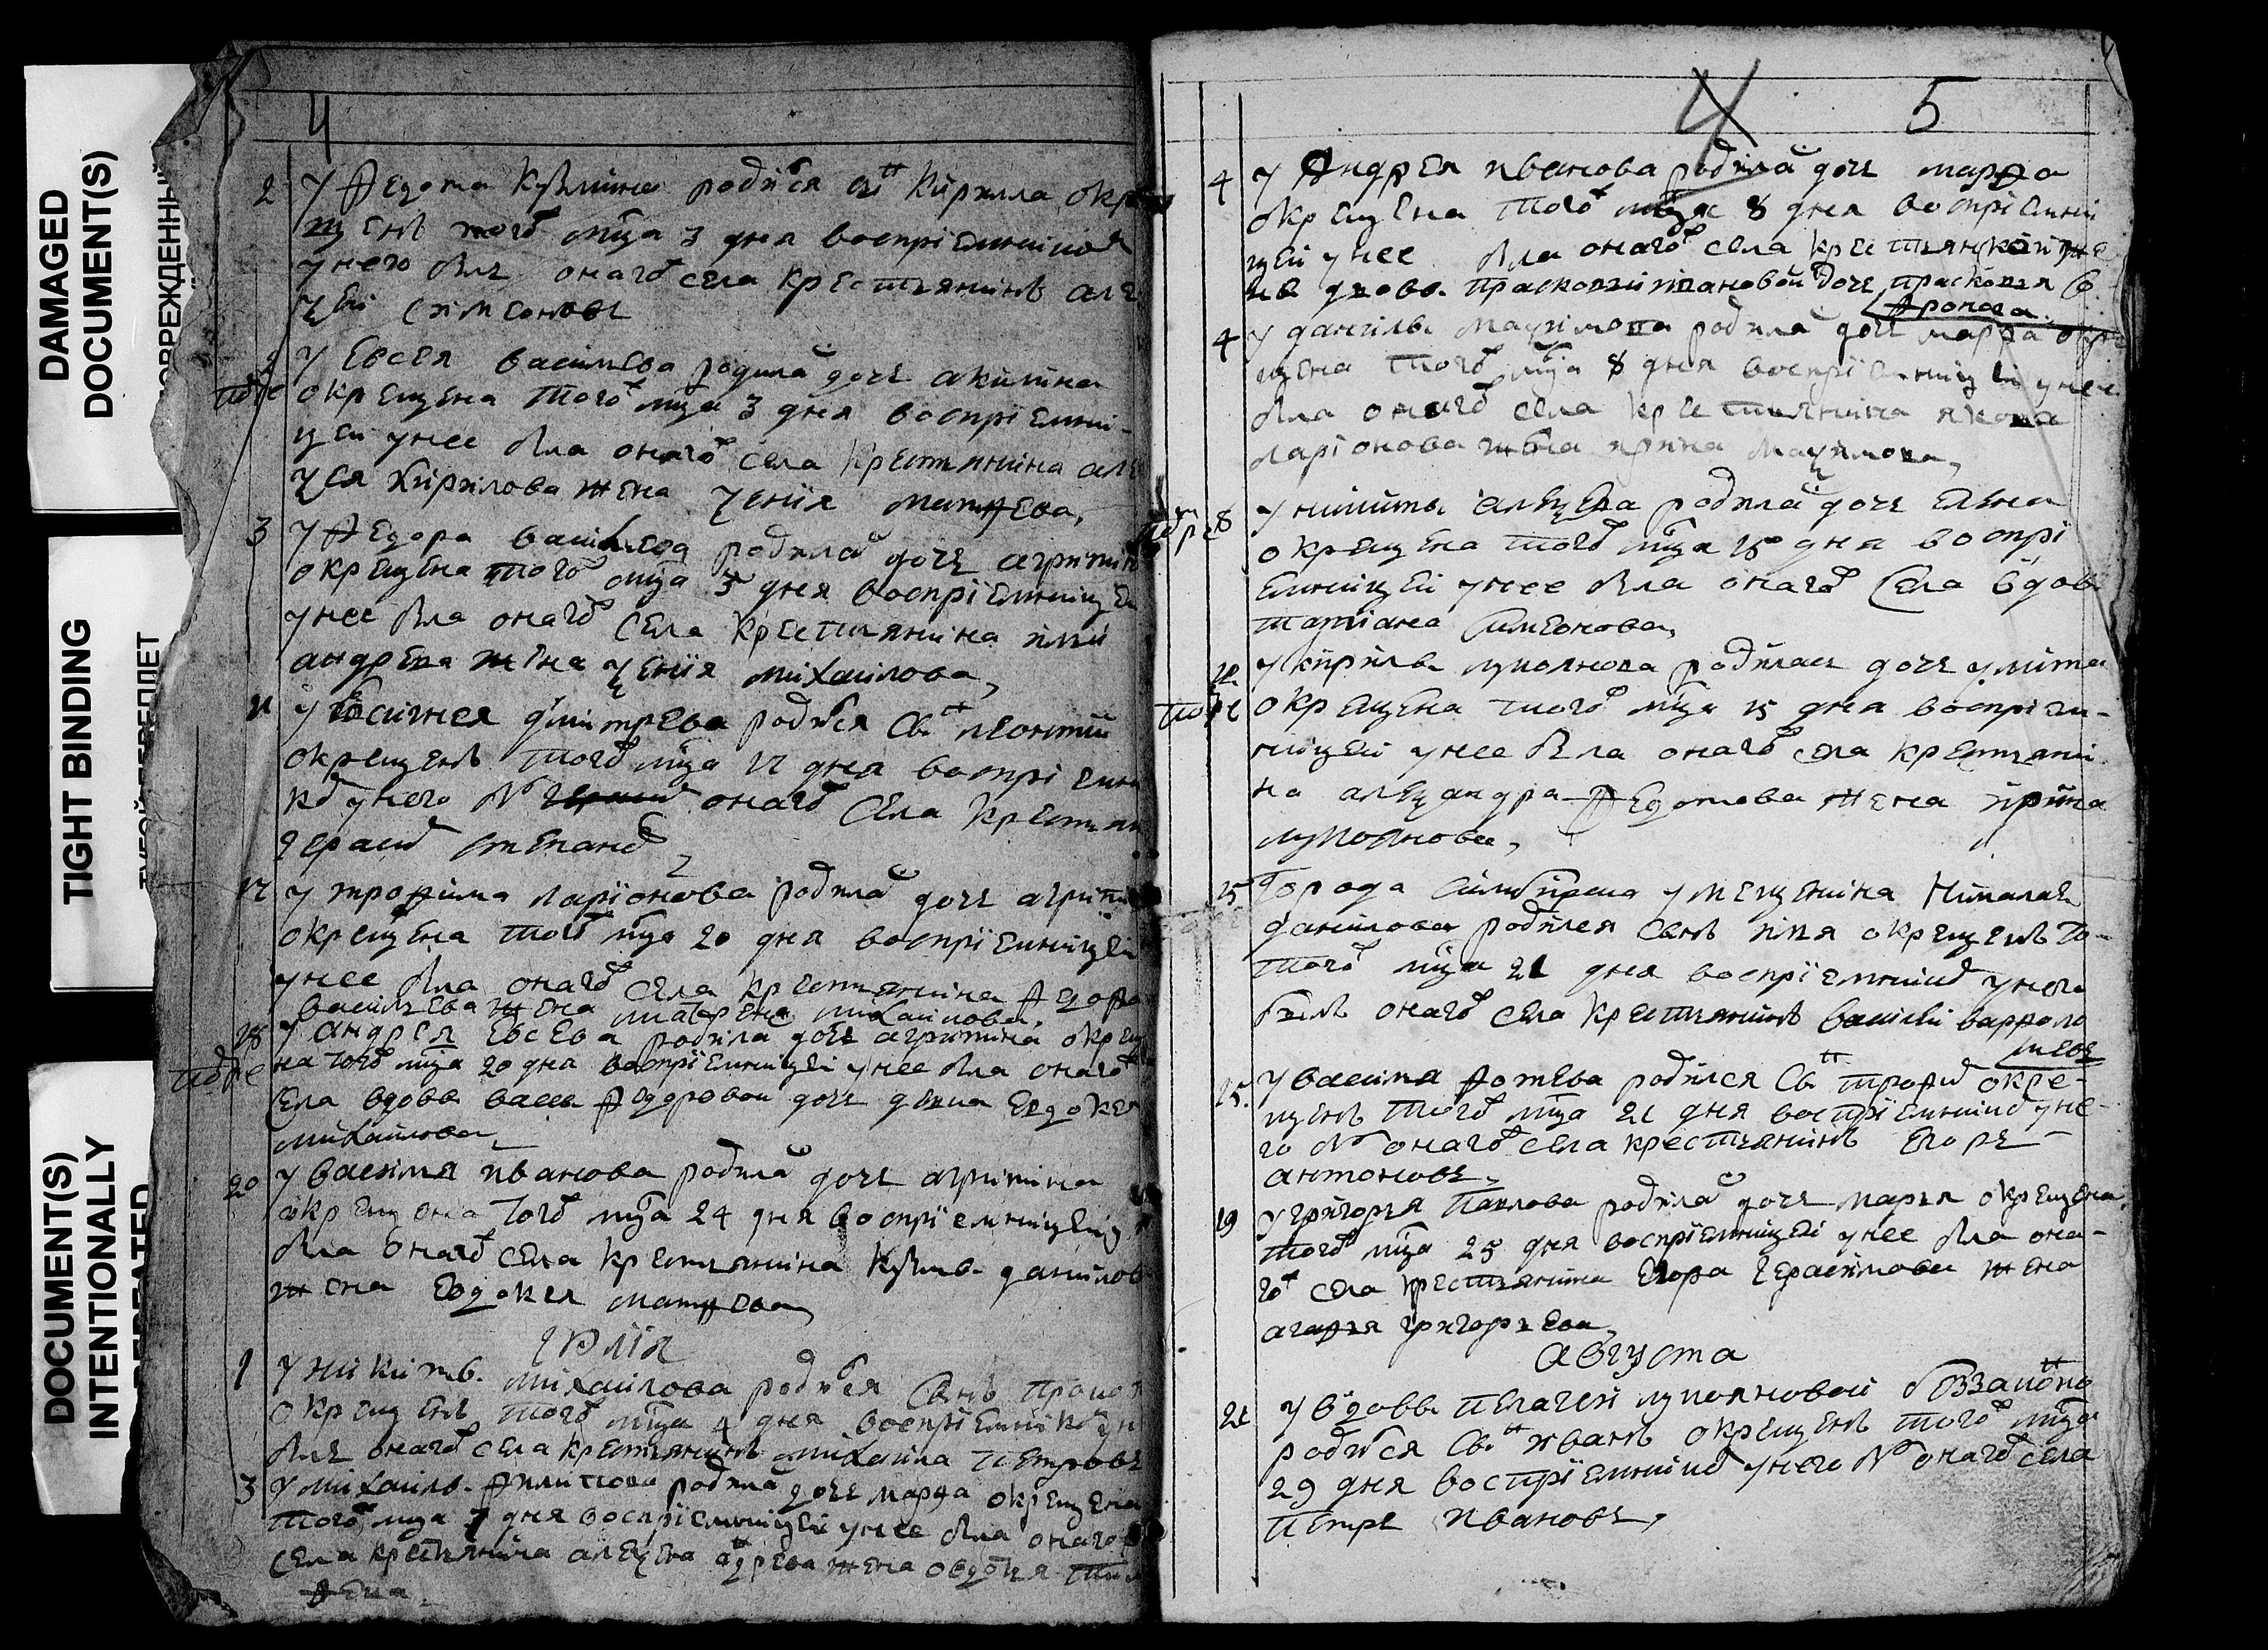 DAMAGED
DOCUMENT(S)
ПОВРЕЖДЕННЫЙ
TIGHT BINDING
ТУГОЙ ПЕРЕПЛЕТ
DOCUMENT(S)
INTENTIONALLY
4
2 У Федота Кузмина родися сн Кирилла окре
щенъ того мца 3 дня восприемником
у него былъ онаго села крестьянинъ але
ѯѣй Симеоновъ
У Евсея Васильева родила дочь акилина
окрещена того мца 3 дня восприемни-
цей у нее была онаго села крестьянина але
ѯея Кирилова жена ѯения Матфеева,
3 У Федора Васильева родила дочь агрипин
окрещена того мца 3 дня восприемницеи
у нее была онаго села крестьянина
андреева жена ѯения Михаилова,
11 У дмитрева родися Сн леонтий
окрещенъ того мца 17 дня восприемни
ко у него бы онаго села крестьян
герасим степано
17 У трофима ларионова родила дочь агрипи
окрещена того мца 20 дня восприемницеи
у нее была онаго села крестьянина Федора
Васильева жена матрена михаилова.
18 У андрея Евсева родила дочь агрипина окреще
на того мца 20 дня восприемницеи у нее была онаго
села вдовы Федоровой дочь девка Евдокея
михаилова
20 У Василия иванова родила дочь агрипина
окрещена того мца 24 дня восприемницеи у
была онаго села крестьянина Кузмы данилов
жена Евдокея матфеева
Июлия
1 У Никиты михаилова родися сынъ
окрещенъ того мца 4 дня восприемнико у н
былъ онаго села крестьянинъ михаила петровъ
3 У михаилы филипова родила дочь марфа окрещена
того мца 7 дня восприемницеи у нее была онаго
села крестьянина алеѯея андрева жена овдотья
4 5
4 У Андрея иванова родила дочь марфа
окрещена того мца 8 дня восприемни
цей у нее была онаго села крестьянской же
ны вдовы прасковьи ивановой дочь прасковья
4 У данилы Маѯимова родила дочь марфа окре
щена того мца 8 дня восприемницеи у нее
была онаго села крестьянина якова
ларионова жена ирина маѯимова,
8 У никиты алеѯева родила дочь елена
окрещена того мца 15 дня воспри
емницей у нее была онаго села вдова
татиана Симеонова,
У Кирилы лукоянова родилась дочь улита
окрещена того мца 15 дня восприем-
ницей у нее была онаго села крестьяни
на алеѯандра Федотова жена ирина
лукоянова,
15 Города Симбирска у мещенина Николая
данилова родился сынъ илия окрещенъ то-
того мца 21 дня восприемнико у него
былъ онаго села крестьянинъ василей варфоло
меевъ
15. У Василия фотева родился Сн трофим окре-
щенъ того мца 21 дня восприемнико у не-
го бы онаго села крестьянинъ Егоръ
антоновъ,
19 У григорья павлова родила дочь марья окрещена
того мца 25 дня восприемницеи у нее была она-
го села крестьянина Егора герасимова жена
агафья григорьева,
Августа
21 У вдовы пелагеи лукояновой беззаконно
родися Сн иванъ окрещенъ того мца
29 дня восприемнико у него бы онаго села
петръ Ивановъ,